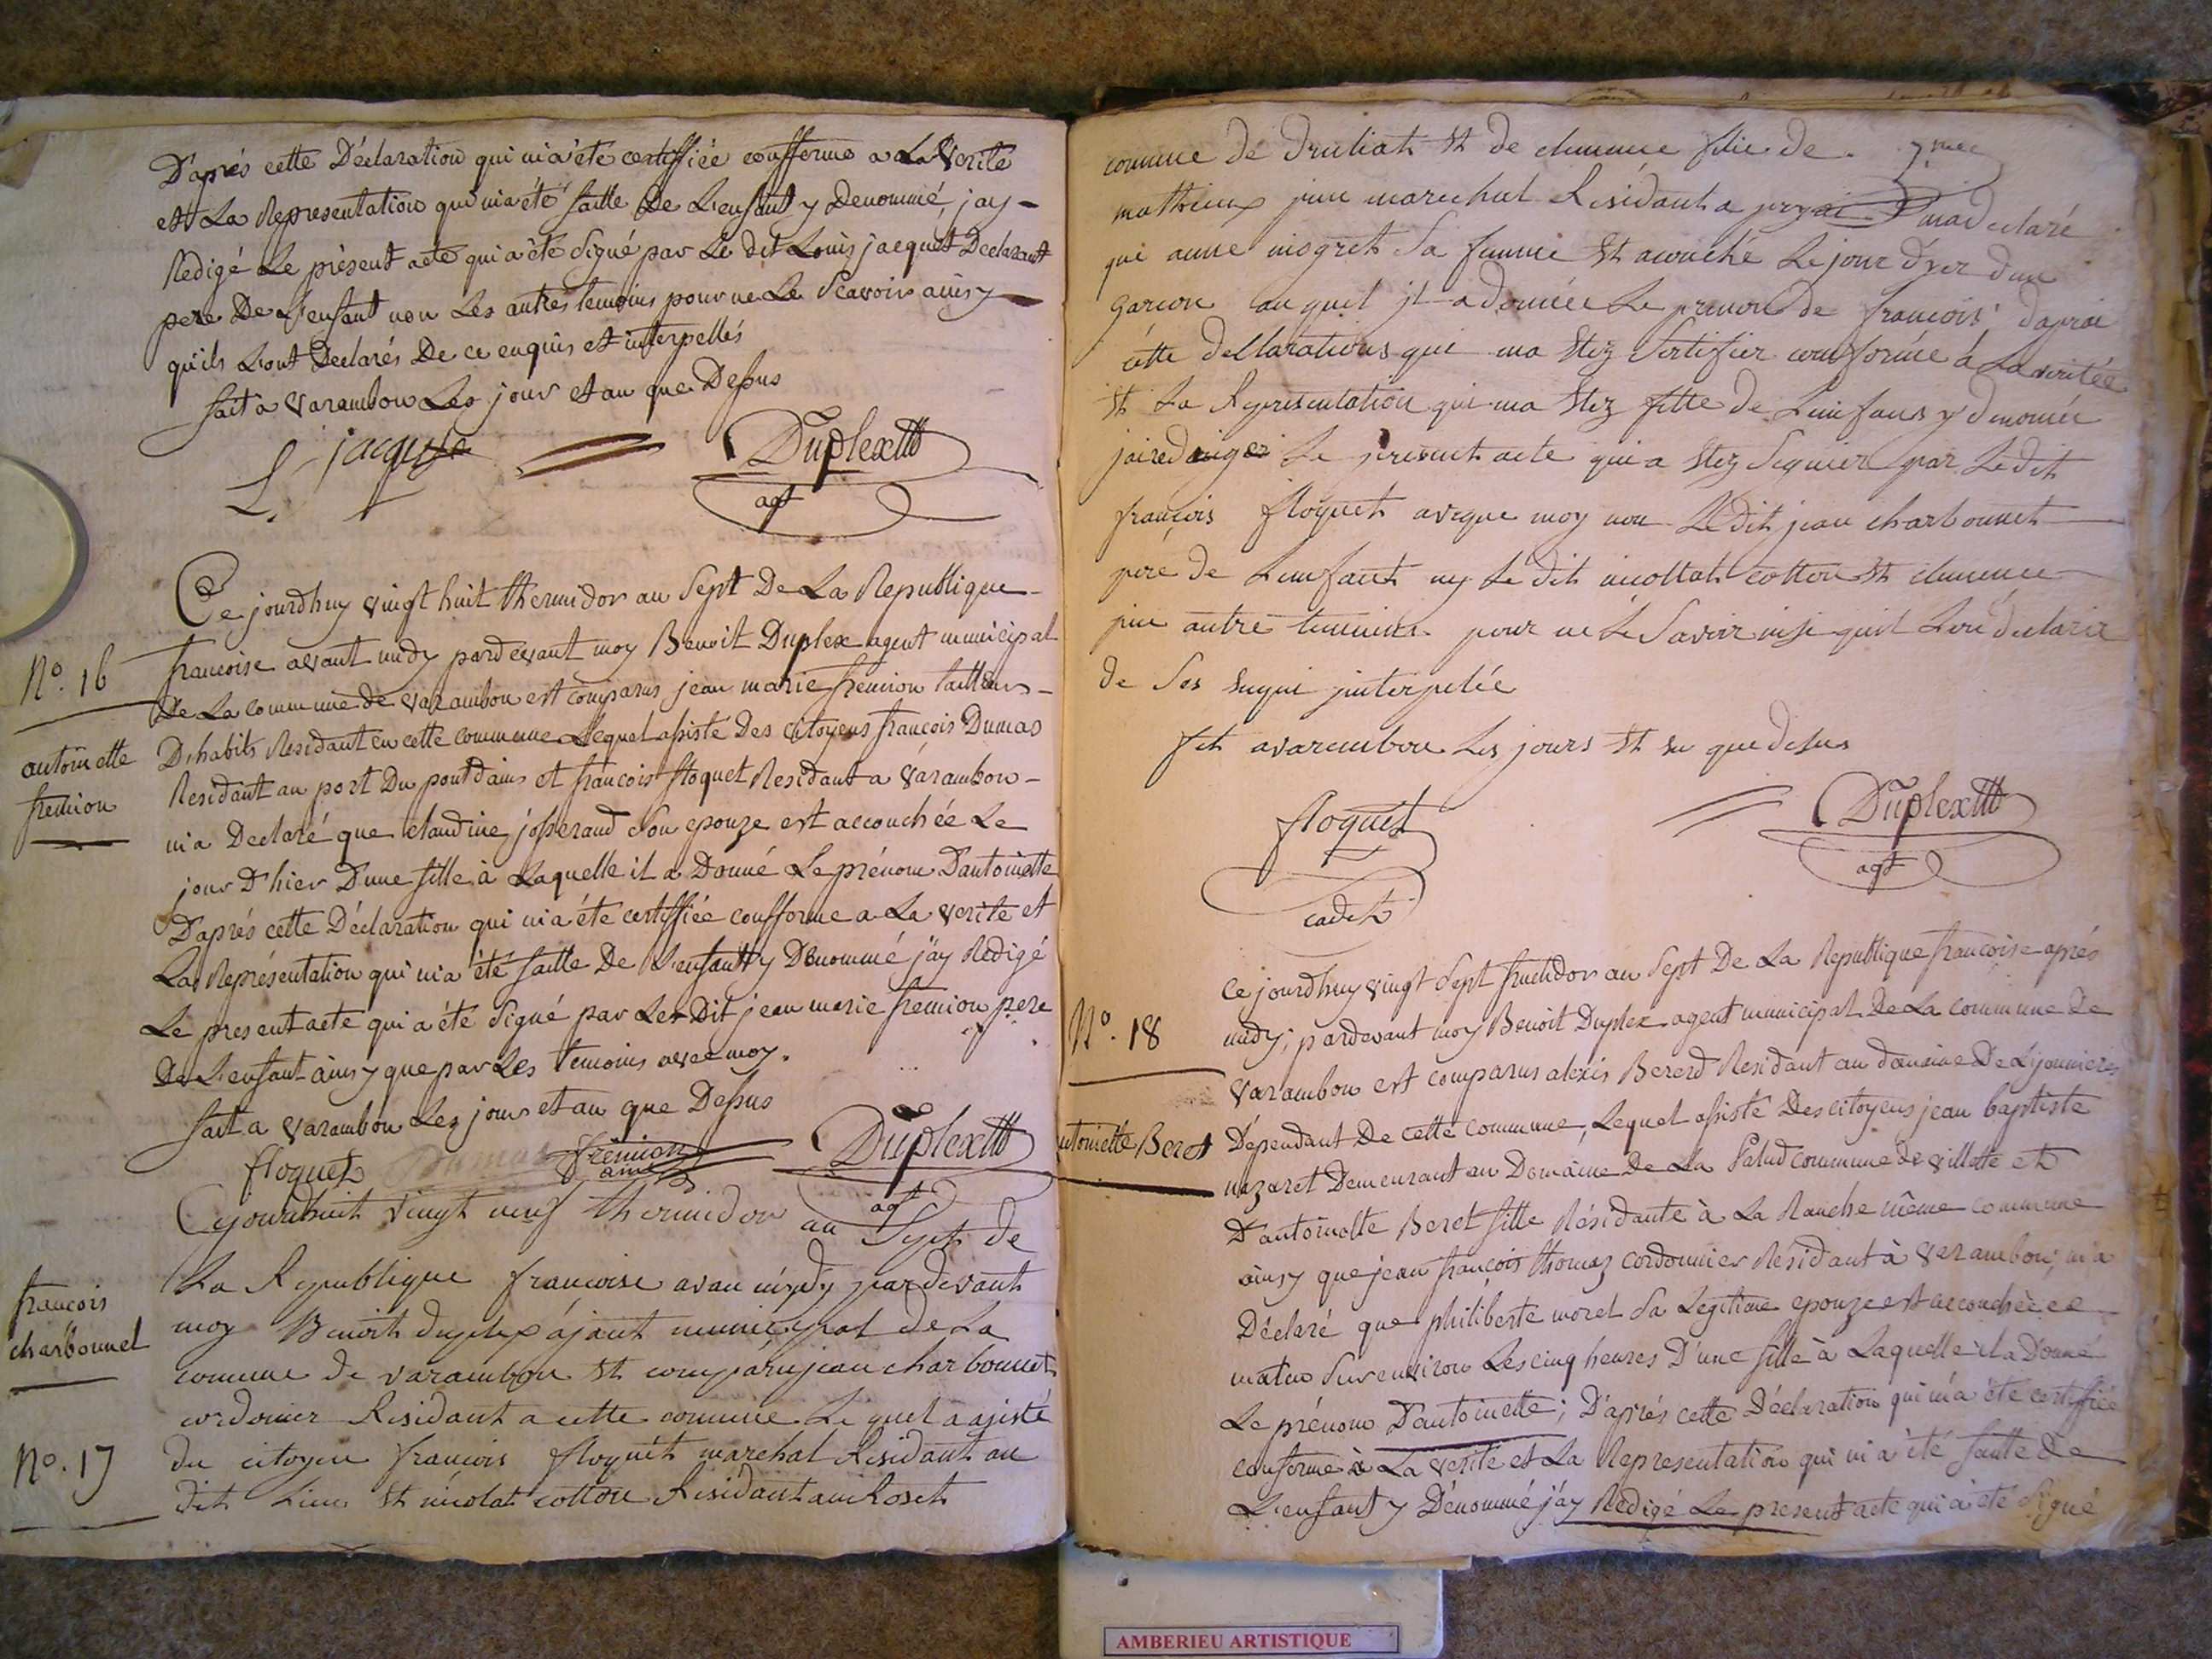 D'aprés cette Déclaration qui m'a été certiffiée confforme a La Verité
et La Representation qui m'a été faitte De L'enfant y Denommé, jay -
Redigé Le présent acte qui a été Signé par Le dit Louis jacquet Declarant
pere De L'enfant non Les autres temoins pour ne Le Scavoir ainsy
qu'ils L'ont Declarés De ce enquis et interpellés
fait a Varambon Les jour et an que Dessus
L. jacquet Duplex
agt
Ce jourdhuy vingt huit thermidor an Sept De La Republique
N°. 16
francoise avant midy pardevant moy Benoit Duplex agent municipal
De La commune de varambon est comparus jean marie fremion tailleur
antoinette
fremion
D'habits Residant en cette commune Lequel assisté Des Citoyens françois Dumas
Residant au port Du pontdains et françois floquet Residant a varambon -
m'a Declaré que claudine josserand Son epouze est accouchée Le
jour D'hier D'une fille à Laquelle il a Donné Le prénom D'antoinette
D'aprés cette Déclaration qui m'a été certiffiée confforme a La verité et
La Représentation qui m'a été faitte De L'enfant y Denommé j'ay Redigé
Le present acte qui a été Signé par Le Dit jean marie fremion pere
De L'enfant ainsy que par Les temoins avec moy.
fait a varambon Les jour et an que Dessus
floquet Dumas fremion ainé Duplex
agt
Cejourdhuit vingt neuf thermidor an Sept de
La Republique francoise avan midy pardevant
françois
charbonnel
moy Benoit duplex ájant municipal de La
comune de varambon Et comparu jean charbonnet
cordonier Residant a cette comune Le quel a ajisté
N°. 17
du citoyen francois floquet marchal Residant au
dit Lieu Et nicolat cotton Residant au Roset
comune de druliat Et de clemence fille de
mathieux juin marechal Residant a madeclaré
que anne mogret Sa femme Et acouché Le jour dyer dun
garcon au quel jl a donnée Le prenon de francois daprai
cette dellarations qui ma Etez Sertifier comforme á La veritée
Et La Representation qui ma Etez fette de Lenfans y denomée
jairedaiger Le present acte qui a Etez Signier par Ledit
françois floquet aveque moy non Ledit jean charbonnet
pere de Lenfant ny Le dit nicollat cotton Et clemence
juin autre temoins pour ne Le Savoir insi quil Lon declarer
de Ses enqui jnterpelée
fet a varembon Les jours Et en que desus
floquet Duplex
cadet agt
ce jourdhuy vingt Sept fructidor an Sept De La Republique françoise aprés
N°. 18
midy; pardevant moy Benoit Duplex agent municipal De La commune De
varambon est comparus alexis Bererd Residant au domaine De Lyonnieres
antoinette Beret
Dépendant De cette commune, Lequel assisté Des citoyens jean baptiste
nazaret Demeurant au Domaine De La Palud commune de villette et
D'antoinette Beret fille Résidante à La Ranche même commune
ainsy que jean françois thomas cordonnier Residant à varambon, m'a
Déclaré que philiberte morel Sa Legitime epouze est accouchée ce
matin Sur environ Les cinq heures D'une fille à Laquelle il a Donné
Le prénom D'antoinette; D'aprés cette Déclaration qui m'a été certiffiée
conforme à La verité et La Representation qui m'a été faitte de
L'enfant y Dénommé j'ay Redigé Le present acte qui a été Signé
AMBERIEU ARTISTIQUE